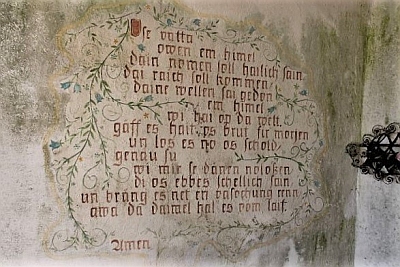 Use vatta
owen em himel
dain nomen soll hailich sain
dai raich soll kommen
daine wellen sai gedon
em himel
wi hai op da welt.
gaff es hait, os brut fir morjen
un los es no os schold
genau su
wi mir se dänen noloßen
di os ebbes schellich sain
un bräng es net en vasochung enn
awa da daiwel hal es vom laif.
Amen